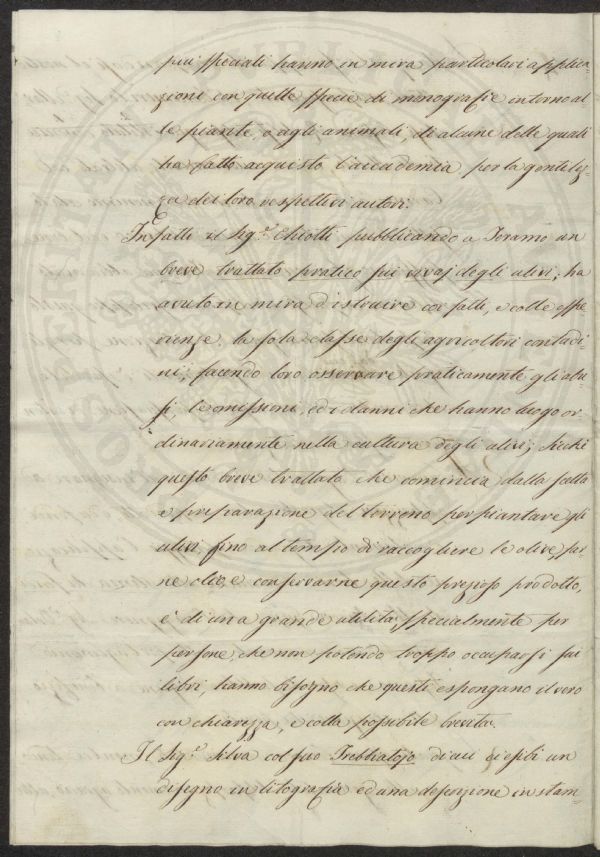 piu speciali hanno in mira particolari applica=
zioni con quelle specie di monografie intorno al
le piante, o agli animali, di alcune delle quali
ha fatto acquisto l'accademia per la gentilez=
za dei loro respettivi autori.
Infatti il Sig.r Chiotti pubblicando a Teramo un
breve trattato pratico sui vivaj degli ulivi, ha
avuto in mira d'istruire co' fatti, e colle espe
rienze la sola classe degli agricoltori contadi=
ni; facendo loro osservare praticamente gli abu=
si, le omissioni, ed i danni che hanno luogo or
dinariamente nella cultura degli ulivi; sicchè
questo breve trattato che comincia dalla scelta
e preparazione del terreno per piantare gli
ulivi fino al tempo di raccogliere le olive, far
ne olio, e conservarne questo prezioso prodotto,
è di una grande utilità, specialmente per
persone, che non potendo troppo occuparsi sui
libri, hanno bisogno che questi espongano il vero
con chiarezza, e colla possibile brevità.
Il Sig.r Silva col suo Trebbiatojo di cui ci esibì un
disegno in litografia ed una descrizione in stam=